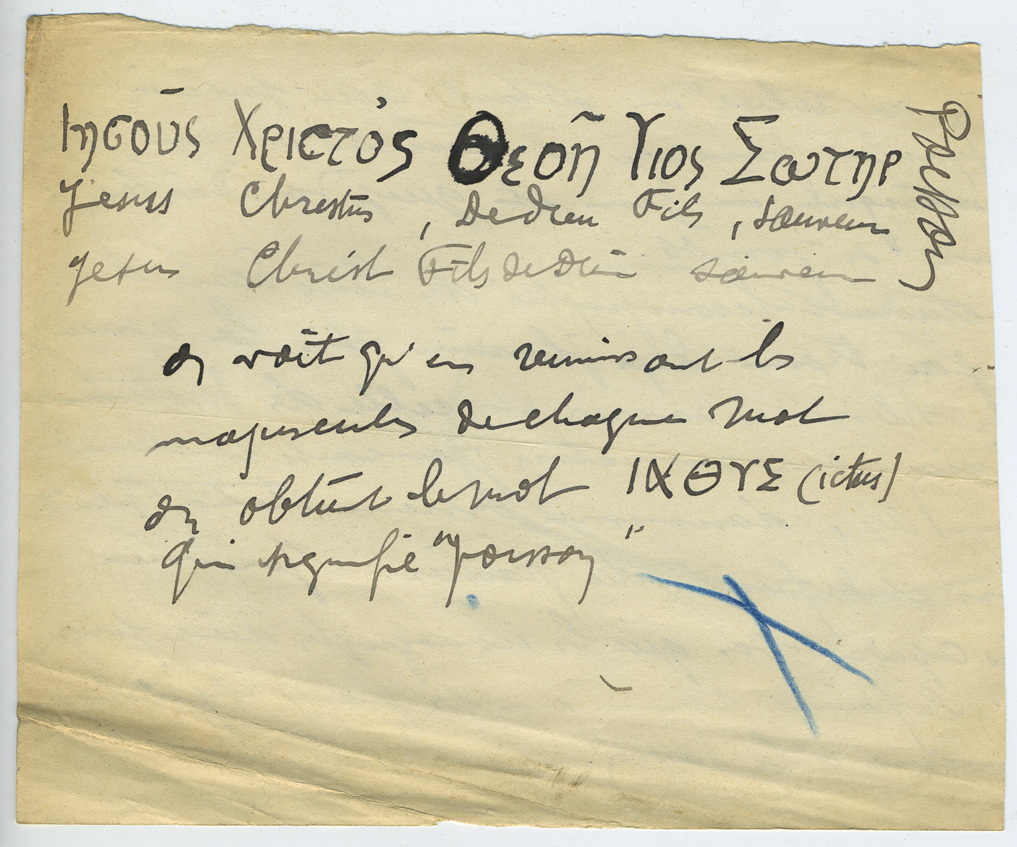 Ιησοῦς Χριστὸς Θεοη̃ Υιος Σωτηρ
Jesus Christus, de dieu Fils, sauveur
Jesus Christ Fils de Dieu sauveur
on voit qu'en reunissant les
majuscules de chaque mot
on obtient le mot ΙΧΘΥΣ (ictus)
qui signifie "poisson"
Poisson